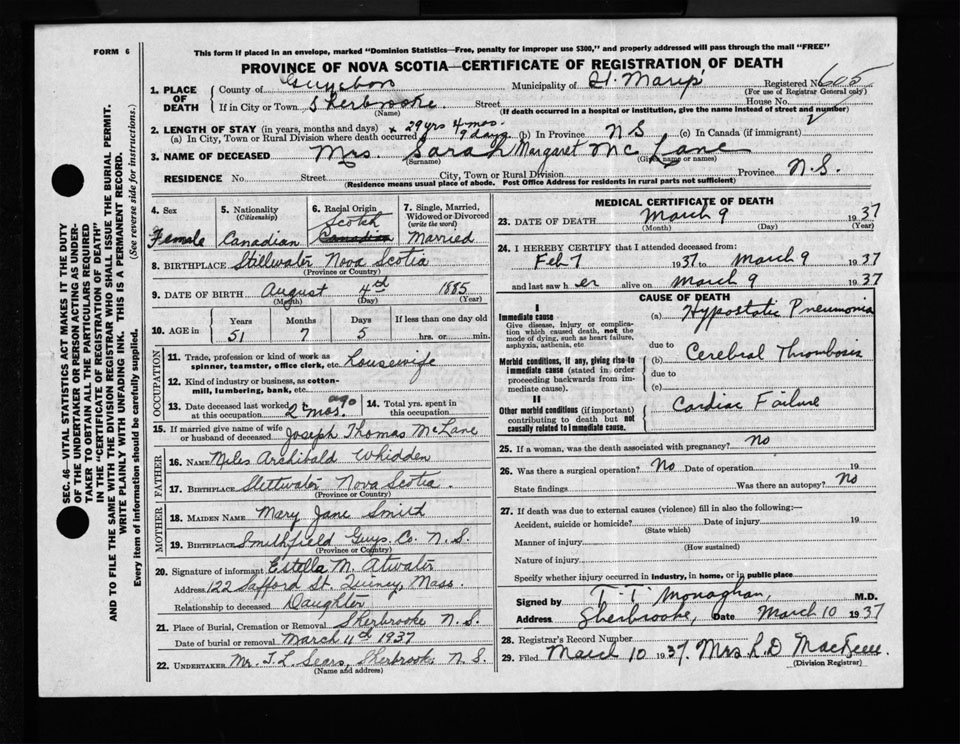 FORM 6
This form if placed in an envelope, marked "Dominion Statistics—Free, penalty for improper use $300," and properly addressed will pass through the mail "FREE"
PROVINCE OF NOVA SCOTIA—CERTIFICATE OF REGISTRATION OF DEATH
1. PLACE OF DEATH
County of Guysboro Municipality of St. Marys Registered No. 605
(For use of Registrar General only)
If in City or Town Sherbrooke Street House No.
(Name) (If death occurred in a hospital or institution, give the name instead of street and number)
2. LENGTH OF STAY (in years, months and days)
(a) In City, Town or Rural Division where death occurred 29 yrs 4 mos. 9 days (b) In Province N S (c) In Canada (if immigrant)
3. NAME OF DECEASED Mrs. Sarah Margaret McLane
(Surname) (Given name or names)
RESIDENCE No. Street City, Town or Rural Division Province N.S.
(Residence means usual place of abode. Post Office Address for residents in rural parts not sufficient)
4. Sex Female
5. Nationality (Citizenship) Canadian
6. Racial Origin Scotch Canadian
7. Single, Married, Widowed or Divorced (write the word) Married
8. BIRTHPLACE Stillwater Nova Scotia
(Province or Country)
9. DATE OF BIRTH August 4th 1885
(Month) (Day) (Year)
10. AGE in Years 51 Months 7 Days 5 If less than one day old hrs. or min.
OCCUPATION
11. Trade, profession or kind of work as spinner, teamster, office clerk, etc. housewife
12. Kind of industry or business, as cotton-mill, lumbering, bank, etc.
13. Date deceased last worked at this occupation 2 mos. ago
14. Total yrs. spent in this occupation
15. If married give name of wife or husband of deceased Joseph Thomas McLane
FATHER
16. NAME Miles Archibald Whidden
17. BIRTHPLACE Stillwater Nova Scotia
(Province or Country)
MOTHER
18. MAIDEN NAME Mary Jane Smith
19. BIRTHPLACE Smithfield Guys. Co. N.S.
(Province or Country)
20. Signature of informant Estella M. Atwater
Address 122 Safford St. Quincy, Mass.
Relationship to deceased Daughter
21. Place of Burial, Cremation or Removal Sherbrooke N.S.
Date of burial or removal March 11th 1937
22. UNDERTAKER Mr. J. L. Sears, Sherbrooke N.S.
(Name and address)
MEDICAL CERTIFICATE OF DEATH
23. DATE OF DEATH March 9 1937
(Month) (Day) (Year)
24. I HEREBY CERTIFY that I attended deceased from:
Feb 7 1937 to March 9 1937
and last saw her alive on March 9 1937
CAUSE OF DEATH
I
Immediate cause
Give disease, injury or complication which caused death, not the mode of dying, such as heart failure, asphyxia, asthenia, etc
(a) Hypostatic Pneumonia
due to
Morbid conditions, if any, giving rise to immediate cause (stated in order proceeding backwards from immediate cause).
(b) Cerebral Thrombosis
due to
(c)
II
Other morbid conditions (if important) contributing to death but not causally related to immediate cause.
Cardiac Failure
25. If a woman, was the death associated with pregnancy? No
26. Was there a surgical operation? No Date of operation 19
State findings Was there an autopsy? No
27. If death was due to external causes (violence) fill in also the following:—
Accident, suicide or homicide? Date of injury 19
(State which)
Manner of injury
(How sustained)
Nature of injury
Specify whether injury occurred in industry, in home, or in public place
Signed by T. T. Monaghan, M.D.
Address Sherbrooke, Date March 10 1937
28. Registrar's Record Number
29. Filed March 10 1937. Mrs L. D.
(Division Registrar)
SEC. 46—VITAL STATISTICS ACT MAKES IT THE DUTY
OF THE UNDERTAKER OR PERSON ACTING AS UNDER-
TAKER TO OBTAIN ALL THE PARTICULARS REQUIRED
IN THE "CERTIFICATE OF REGISTRATION OF DEATH"
AND TO FILE THE SAME WITH THE DIVISION REGISTRAR WHO SHALL ISSUE THE BURIAL PERMIT.
WRITE PLAINLY WITH UNFADING INK. THIS IS A PERMANENT RECORD.
Every item of information should be carefully supplied. (See reverse side for instructions.)